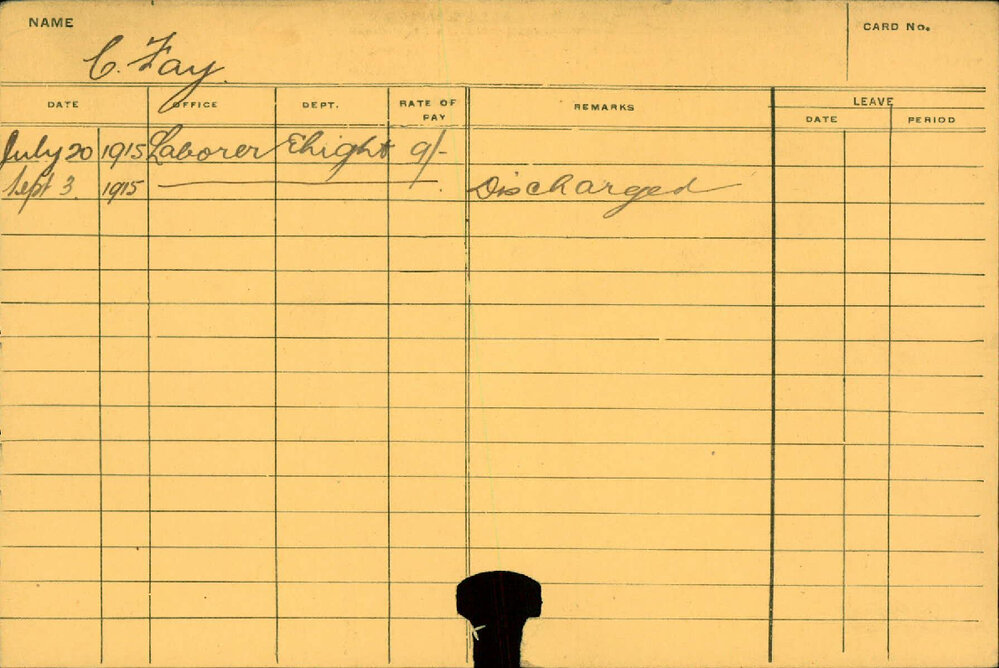 NAME
CARD No.
C. Fay.
DATE OFFICE DEPT. RATE OF PAY REMARKS LEAVE
DATE PERIOD
July 20 1915 Laborer Elight 9/-
Sept 3. 1915 Discharged